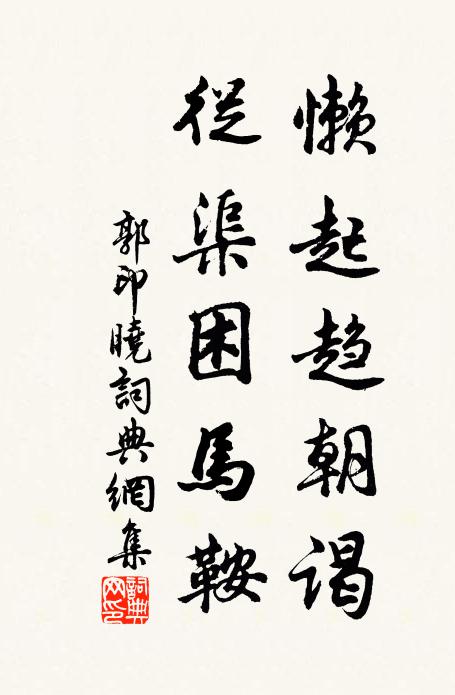 懶起趋朝谒
從渠困馬鞍
郭印曉詞典網集
詞典網印